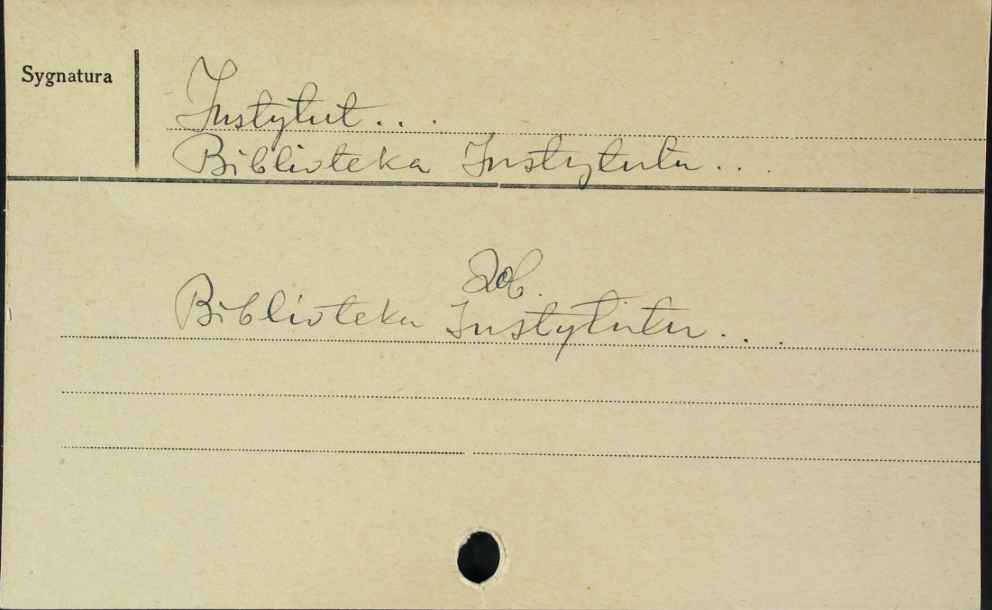 Sygnatura
Instytut...
Biblioteka Instytutu...
Zob.
Biblioteka Instytutu...